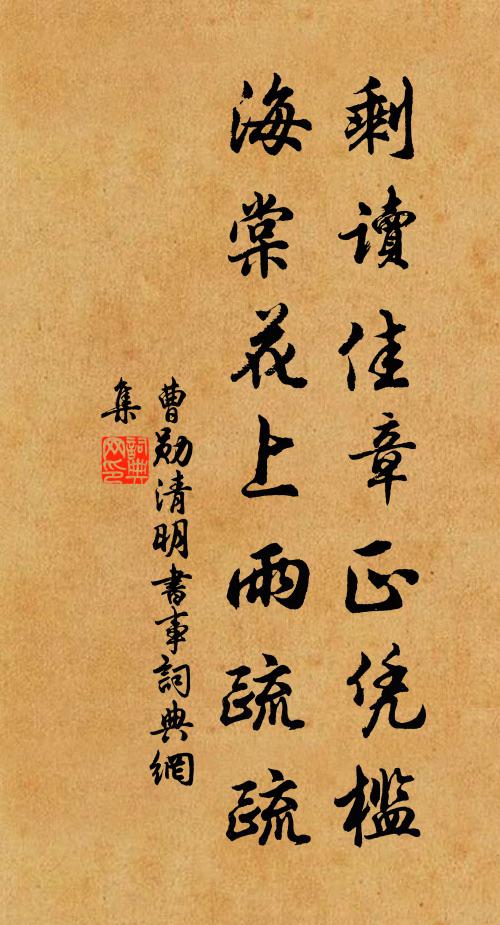 剩讀佳章正凭檻
海棠花上雨疏疏
曹勛清明書事詞典網
集
詞典網印